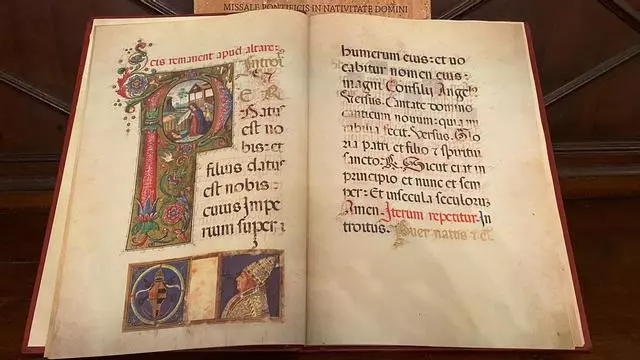 MISSALE PONTIFICIS IN NATIVITATE DOMINI
cis remanent apud altare:
Introi
P
E R
Natus
est no
bis: et
filius datus
est nobis:
cuius Impe
rium super
humerum eius: et vo
cabitur nomen eius:
magni Consilij Angel
Versus. Cantate domino
canticum novum: quia mi
rabilia fecit. Versus. Glo
ria patri et filio et spiritui
sancto. R. Sicut erat in
principio et nunc et sem
per: Et in secula seculorum
Amen. Iterum repetitur In
troitus. Puer natus e